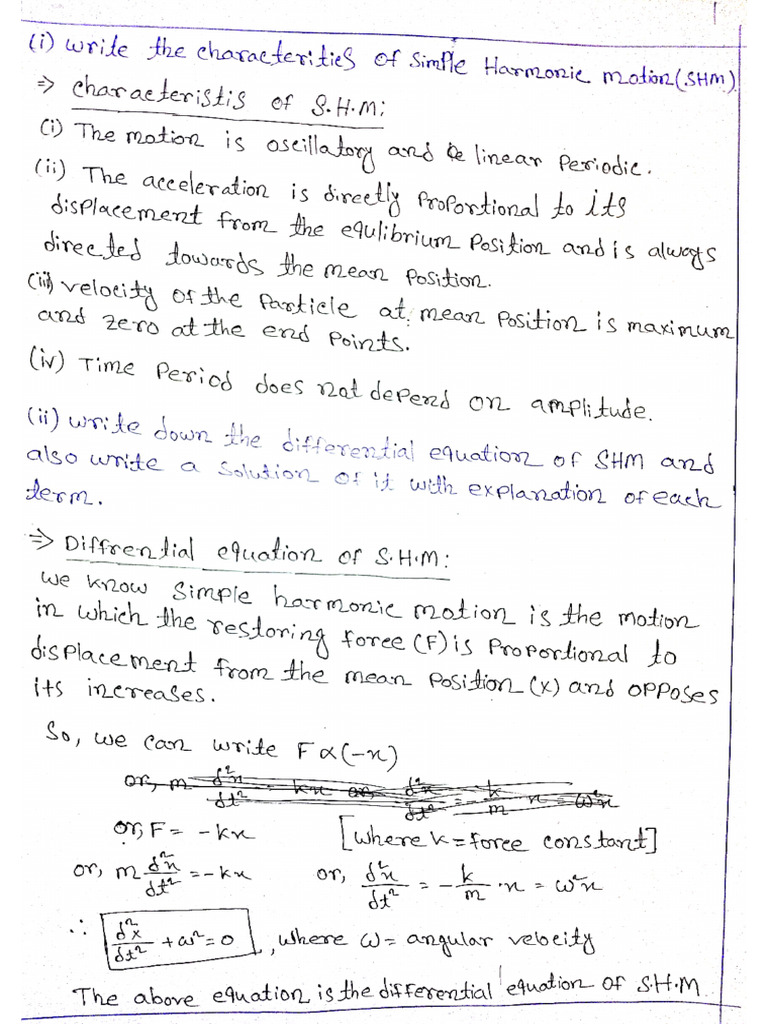 1
(i) write the characterities of simple Harmonic motion (SHM)
⇒ characteristis of S.H.M:
(i) The motion is oscillatory and linear periodic.
(ii) The acceleration is directly proportional to its
displacement from the equlibrium position and is always
directed towards the mean position.
(iii) velocity of the particle at mean position is maximum
and zero at the end points.
(iv) Time period does not depend on amplitude.
(ii) write down the differential equation of SHM and
also write a solution of it with explanation of each
term.
⇒ Diffrential equation of S.H.M:
we know simple harmonic motion is the motion
in which the restoring force (F) is proportional to
displacement from the mean position (x) and opposes
its increases.
So, we can write F ∝ (-x)
or, m d²x/dt² = kx or, d²x/dt² = -k/m x = ω²x
or, F = -kx [where k = force constant]
or, m d²x/dt² = -kx or, d²x/dt² = -k/m · x = ω²x
∴ d²x/dt² + ω² = 0, where ω = angular velocity
The above equation is the differential equation of S.H.M